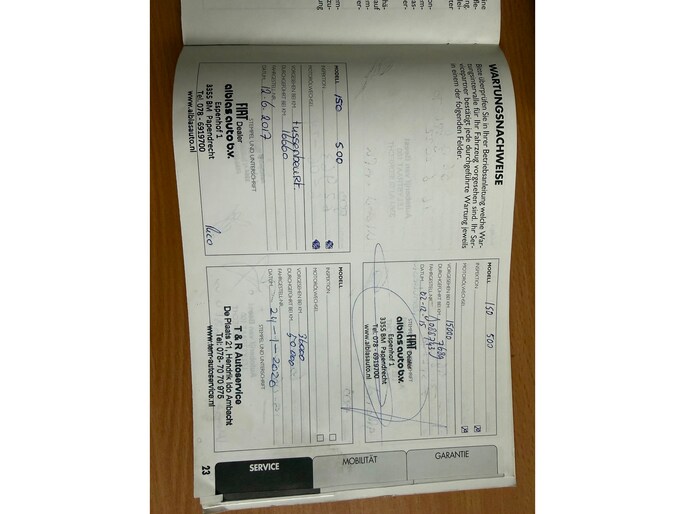 WARTUNGSNACHWEISE
Bitte überprüfen Sie in Ihrer Betriebsanleitung welche War-
tungsintervalle für Ihr Fahrzeug vorgesehen sind. Ihr Ser-
vicepartner bestätigt jede durchgeführte Wartung jeweils
in einem der folgenden Felder.
MODELL 150 500
INSPEKTION
MOTORÖLWECHSEL
VORGESEHEN BEI KM tussenbeurt.
DURCHGEFÜHRT BEI KM 16660
FAHRGESTELL-NR.
DATUM 12.6.2017
STEMPEL UND UNTERSCHRIFT
FIAT Dealer
alblas auto b.v.
Espenhof 1
3355 BM Papendrecht
Tel. 078 - 6919700
www.alblasauto.nl
Rico
MODELL 150 500
INSPEKTION
MOTORÖLWECHSEL
VORGESEHEN BEI KM 15000
DURCHGEFÜHRT BEI KM 7680
FAHRGESTELL-NR.
DATUM 02-12-15
FIAT Dealer
alblas auto b.v.
Espenhof 1
3355 BM Papendrecht
Tel: 078 - 6919700
www.alblasauto.nl
MODELL
INSPEKTION
MOTORÖLWECHSEL
VORGESEHEN BEI KM
DURCHGEFÜHRT BEI KM
FAHRGESTELL-NR.
DATUM 24-1-2020
STEMPEL UND UNTERSCHRIFT
T & R Autoservice
De Plaats 21, Hendrik Ido Ambacht
Tel: 078- 70 70 975
www.tenr-autoservice.nl
23
SERVICE
MOBILITÄT
GARANTIE